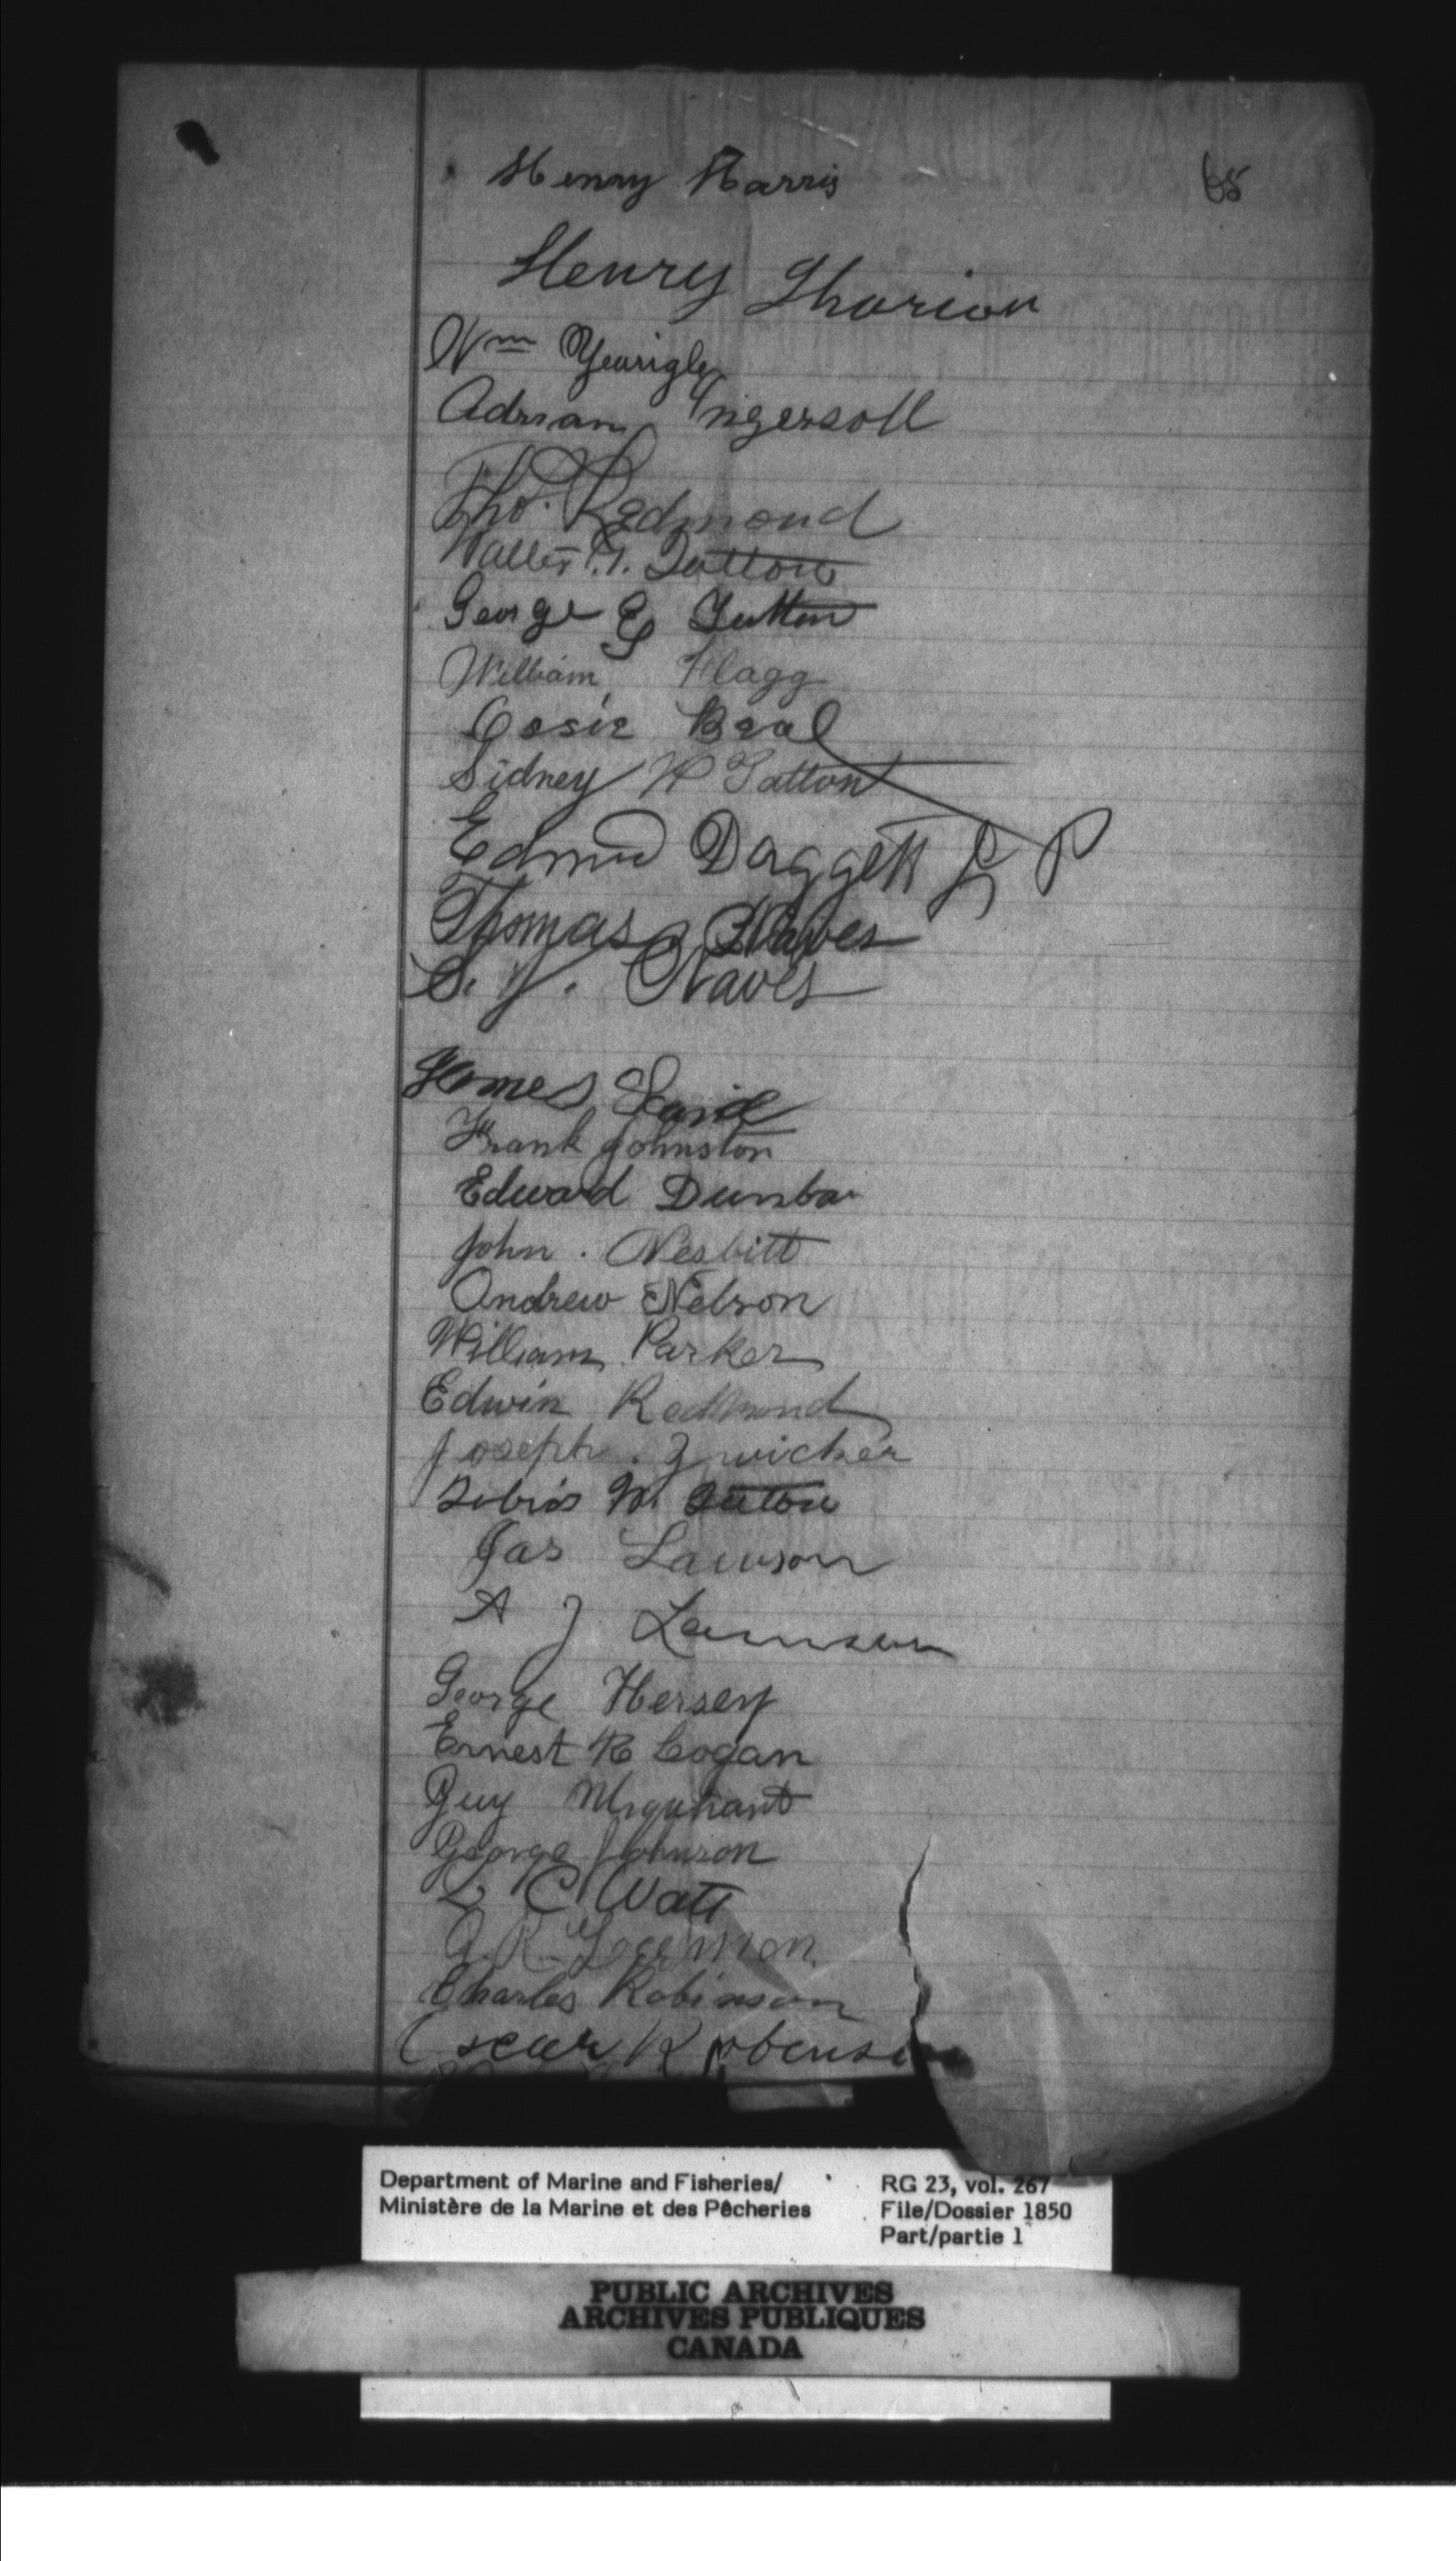 65
Henry Harris
Henry Thurion
Wm
Adrian Ingersoll
Tho. Redmond
Walter T. Tatton
George E Tutton
William Flagg
Beal
Sidney H Tatton
Edmund Daggett
Thomas Hawes
S. J.
James
Frank Johnston
Edward Dunbar
John . Nesbitt
Andrew Nelson
William Parker
Edwin Redmond
Joseph . Zwicker
W.
Jas Lawson
A J Lawson
George Hersey
Ernest R Cogan
Guy Urquhart
George Johnson
L C Watt
A. R.
Charles Robinson
Oscar Robinson
Department of Marine and Fisheries/
Ministère de la Marine et des Pêcheries
RG 23, vol. 267
File/Dossier 1850
Part/partie 1
PUBLIC ARCHIVES
ARCHIVES PUBLIQUES
CANADA